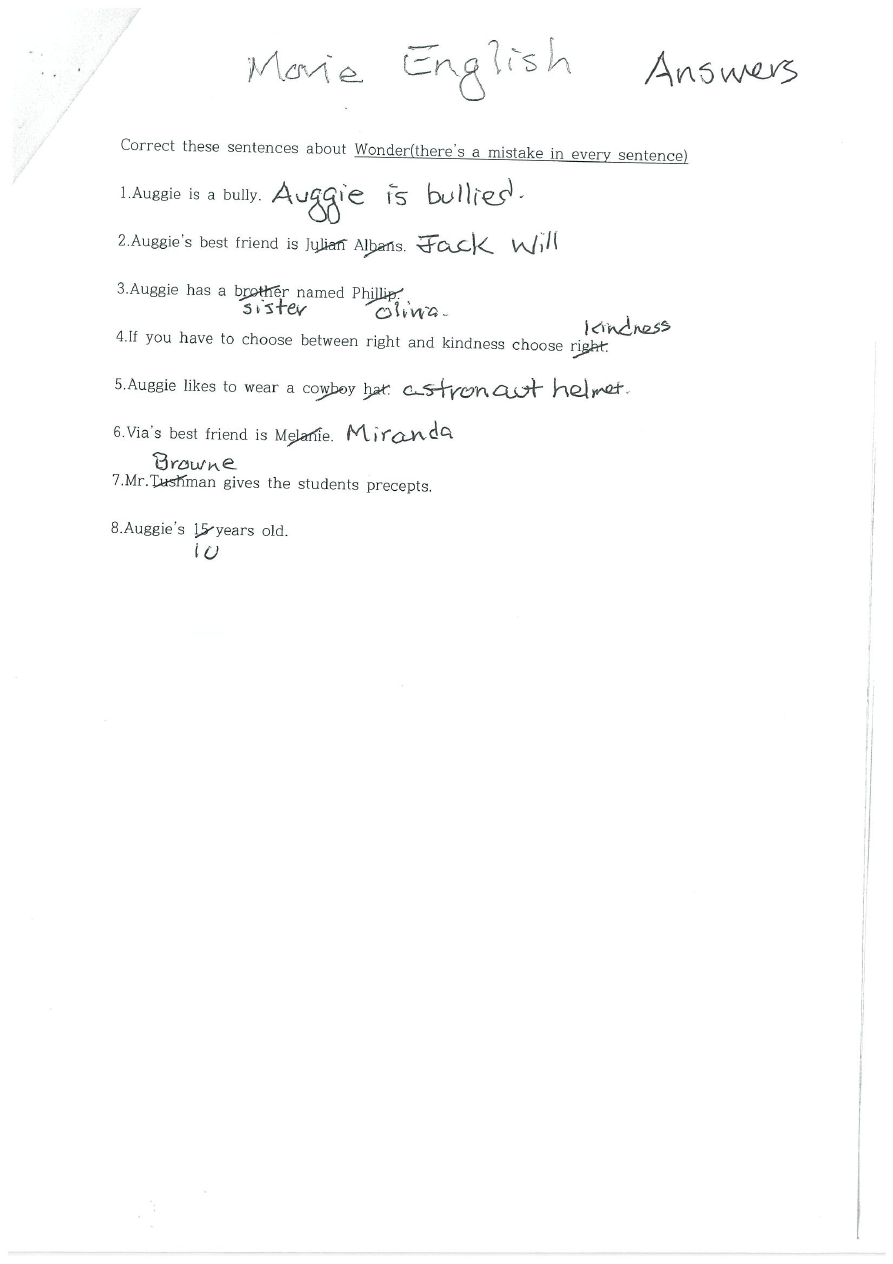 Movie English Answers
Correct these sentences about Wonder(there's a mistake in every sentence)
1.Auggie is a bully. Auggie is bullied.
2.Auggie's best friend is Julian Albans. Jack Will
3.Auggie has a brother named Phillip.
sister olivia.
kindness
4.If you have to choose between right and kindness choose right.
5.Auggie likes to wear a cowboy hat. astronaut helmet.
6.Via's best friend is Melanie. Miranda
Browne
7.Mr.Tushman gives the students precepts.
8.Auggie's 15 years old.
10